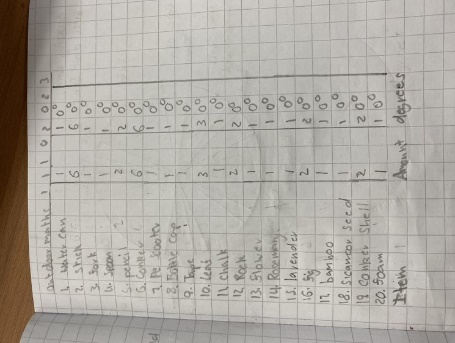 outdoor maths 1, 1, 0, 2, 0, 2, 3
1. water can 1 1 0°
2. stick 6 6 0°
3. fork 1 1 0°
4. spoon 1 1 0°
5. pencil 2 2 0°
6. conker 6 6 0°
7. scooter 1 1 0°
8. cap 1 1 0°
9. 1 1 0°
10. leaf 3 3 0°
11. chalk 1 1 0°
12. Rock 2 2 0°
13. flower 1 1 0°
14. Rosemary 1 1 0°
15. lavender 1 1 0°
16. 2 2 0°
17. bamboo 1 1 0°
18. Sycamor seed 1 1 0°
19. Conker shell 2 2 0°
20. foam 1 1 0°
Item Amount degrees